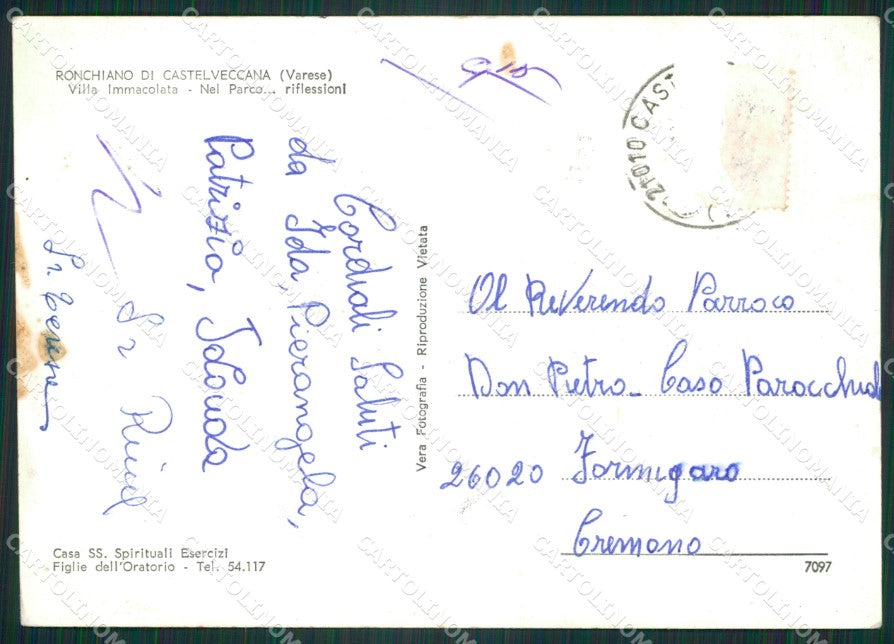 RONCHIANO DI CASTELVECCANA (Varese)
Villa Immacolata - Nel Parco... riflessioni
Cordiali Saluti
da Ida, Pierangela,
Patrizia, Idouda
Sr
Sr.
Vera Fotografia - Riproduzione Vietata
21010 CAST
Al Reverendo Parroco
Don Pietro - Casa Parocchial
26020 Formigaro
Cremona
Casa SS. Spirituali Esercizi
Figlie dell'Oratorio - Tel. 54.117
7097
CARTOLINOMANIA